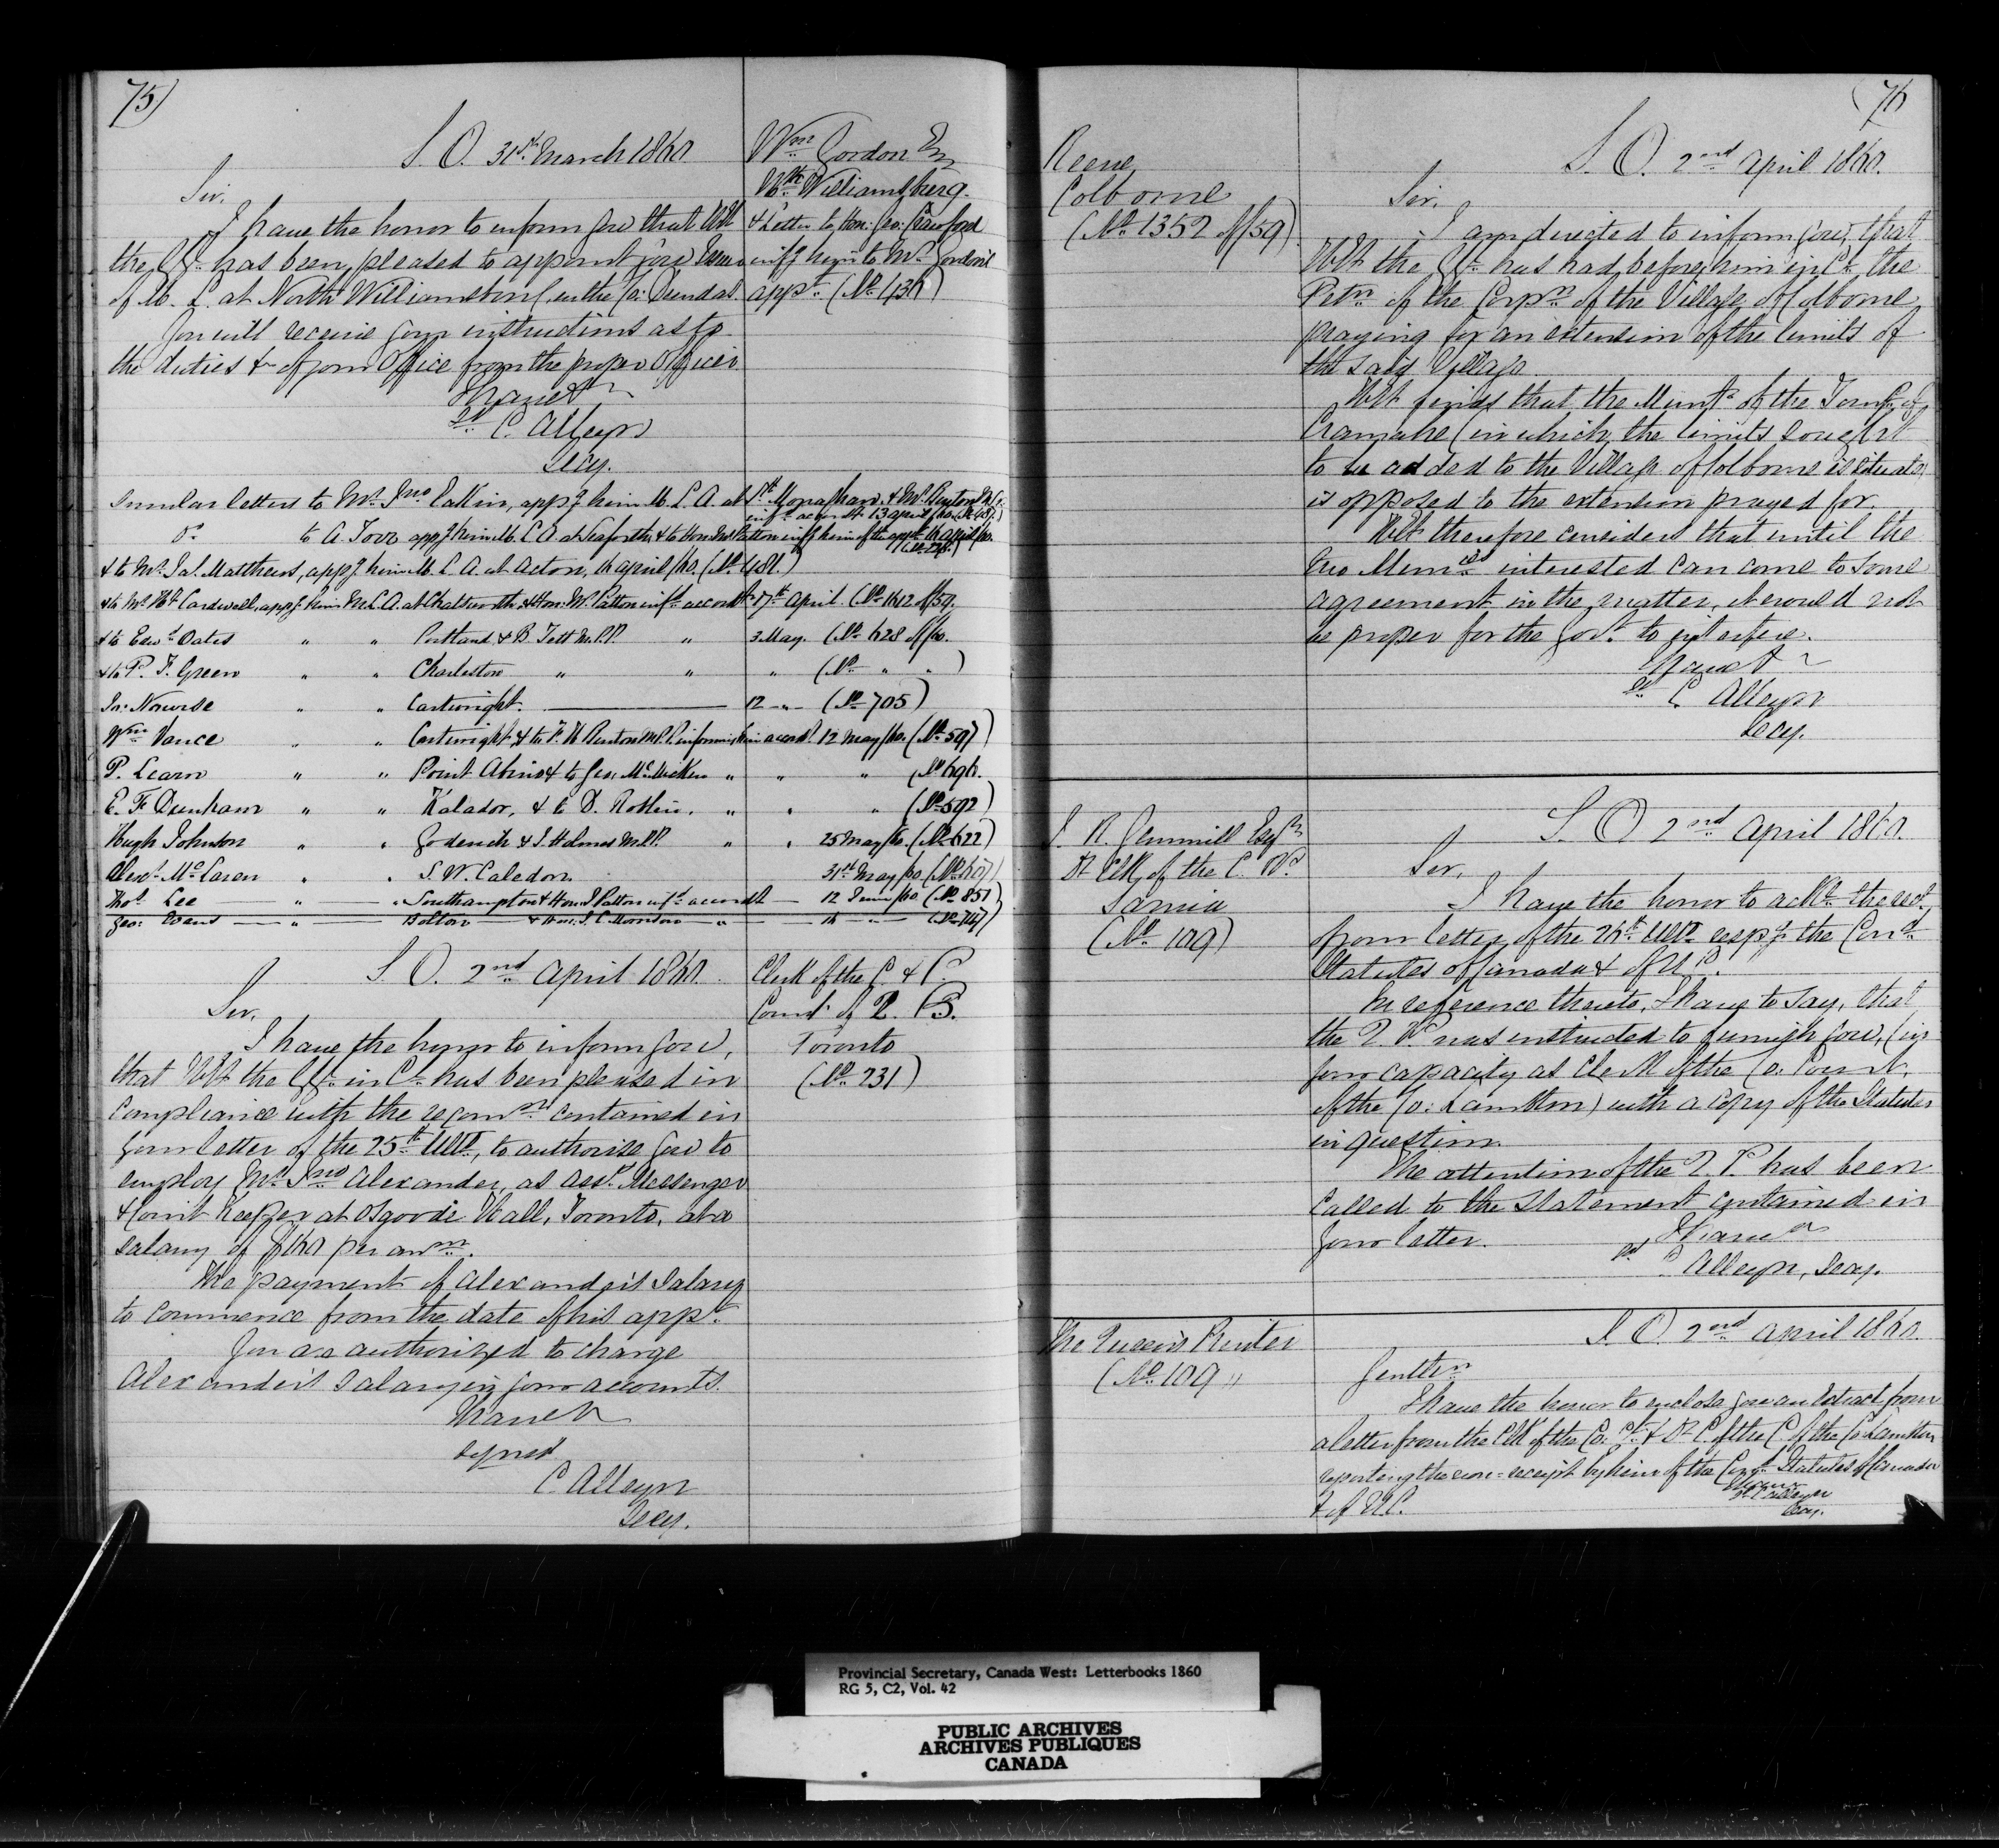 75)
S. O. 31st March 1860
Wm Gordon Esq
Nth Williamsburg.
& Letter to Hon: Geo: Crawford
infg him to Mr Gordon's
appt. (No 436)
Sir,
I have the honor to inform you that HE
the GG. has been pleased to appoint you Issuer
of M. L. at North Williamsburg in the Co: Dundas.
You will receive your instructions as to
the duties &c of your Office from the proper Officer
I have &c
sd C. Alleyn
Secy.
Similar letters to Mr Jno Eakin, appg him M. L. A. at Sth Monaghan, & Mr Burton M.P.
infd accordt 13 April /60. (No 487)
Do to A. Torr appg him M. L. A. at Seaforth & to Hon: Jas Patton infg him of the appt 16 April /60.
& to Mr Jas. Matthews, appg him M. L. A. at Acton, 16 April /60. (No 481.)
& to Mr Ht Cardwell, appg him M.L.A. at Chatsworth, & Hon: Mr Patton infd accordt 17th April (No 1612 of /59.
& to Edwd Oates " " Portland & B. Tett M.P.P. " 3 May. (No 628 of /60.
& to P. F. Green " " Charleston " " " (No " " )
Jn: Nourse " " Cartwright. 12 " (No 705)
Wm Vance " " Cartwright & to F. H. Burton M.P.P. informing him accordt. 12 May /60. (No 597)
P. Learn " " Point Abino & to Geo: McMicken " " " (No 696.
E. F. Dunham " " Kalador, & to D. Roblin. " " " (No 592)
Hugh Johnston " " Goderich & J. Holmes M.P.P. " " 25 May /60. (No 622)
Alexr McLaren " " S. W. Caledon 31st May /60 (No 607)
Thos Lee " " Southampton & Hon: J Patton infd accordt 12 June /60. (No 851)
Geo: Evans " Bolton & Hon: J. C. Morrison " 14 " (No 747)
S. O. 2nd April 1860.
Clerk of the C. & P
Court of Q. B.
Toronto
(No 231)
Sir,
I have the honor to inform you,
that HE the GG. in C. has been pleased in
compliance with the recomn contained in
your letter of the 25th Ulto, to authorize you to
employ Mr Jno Alexander, as asst Messenger
& Court Keeper at Osgoode Hall, Toronto, at a
salary of £160 per annm.
The payment of Alexander's Salary
to commence from the date of his appt.
You are authorized to charge
Alexander's Salary in your accounts.
I have &c
signed
C. Alleyn
Secy.
(76
Reeve
Colborne
(No 1352 of /59)
S. O. 2nd April 1860.
Sir,
I am directed to inform you, that
HE the GG. has had before him in C. the
Petn of the Corpn of the Village of Colborne
praying for an extension of the limits of
the said Village.
HE finds that the Munty of the Townsp of
Cramahe (in which the limits sought
to be added to the Village of Colborne is situate)
is opposed to the extension prayed for.
HE therefore considers that until the
two Munies interested can come to some
agreement in the matter, it would not
be proper for the Govt to interfere.
I have &c
sd C. Alleyn
Secy.
J. R. Gemmill Esqr
Dy Clk of the C. Pt
Sarnia
(No 109)
S. O. 2nd April 1860.
Sir,
I have the honor to ackn. the rect
from letter of the 26th Ulto respg the Cond
Statutes of Canada & of U.C.
In reference thereto, I have to say, that
the Q. P. was instructed to furnish you, (in
your capacity as Clerk of the Co: Court,
of the Co: Lambton) with a copy of the Statutes
in question.
The attention of the Q. P. has been
called to the Statement contained in
your letter.
I have &c
sd C. Alleyn, Secy.
The Queen's Printer
(No 109 "
S. O. 2nd April 1860.
Gentlen
I have the honor to enclose you an Extract from
a letter from the Clk of the Co: Ct. & Dy C. of the C of the Co: Lambton
reporting the non-receipt by him of the Cond Statutes of Canada
& of U.C.
I have &c
sd C Alleyn
Secy.
Provincial Secretary, Canada West: Letterbooks 1860
RG 5, C2, Vol. 42
PUBLIC ARCHIVES
ARCHIVES PUBLIQUES
CANADA